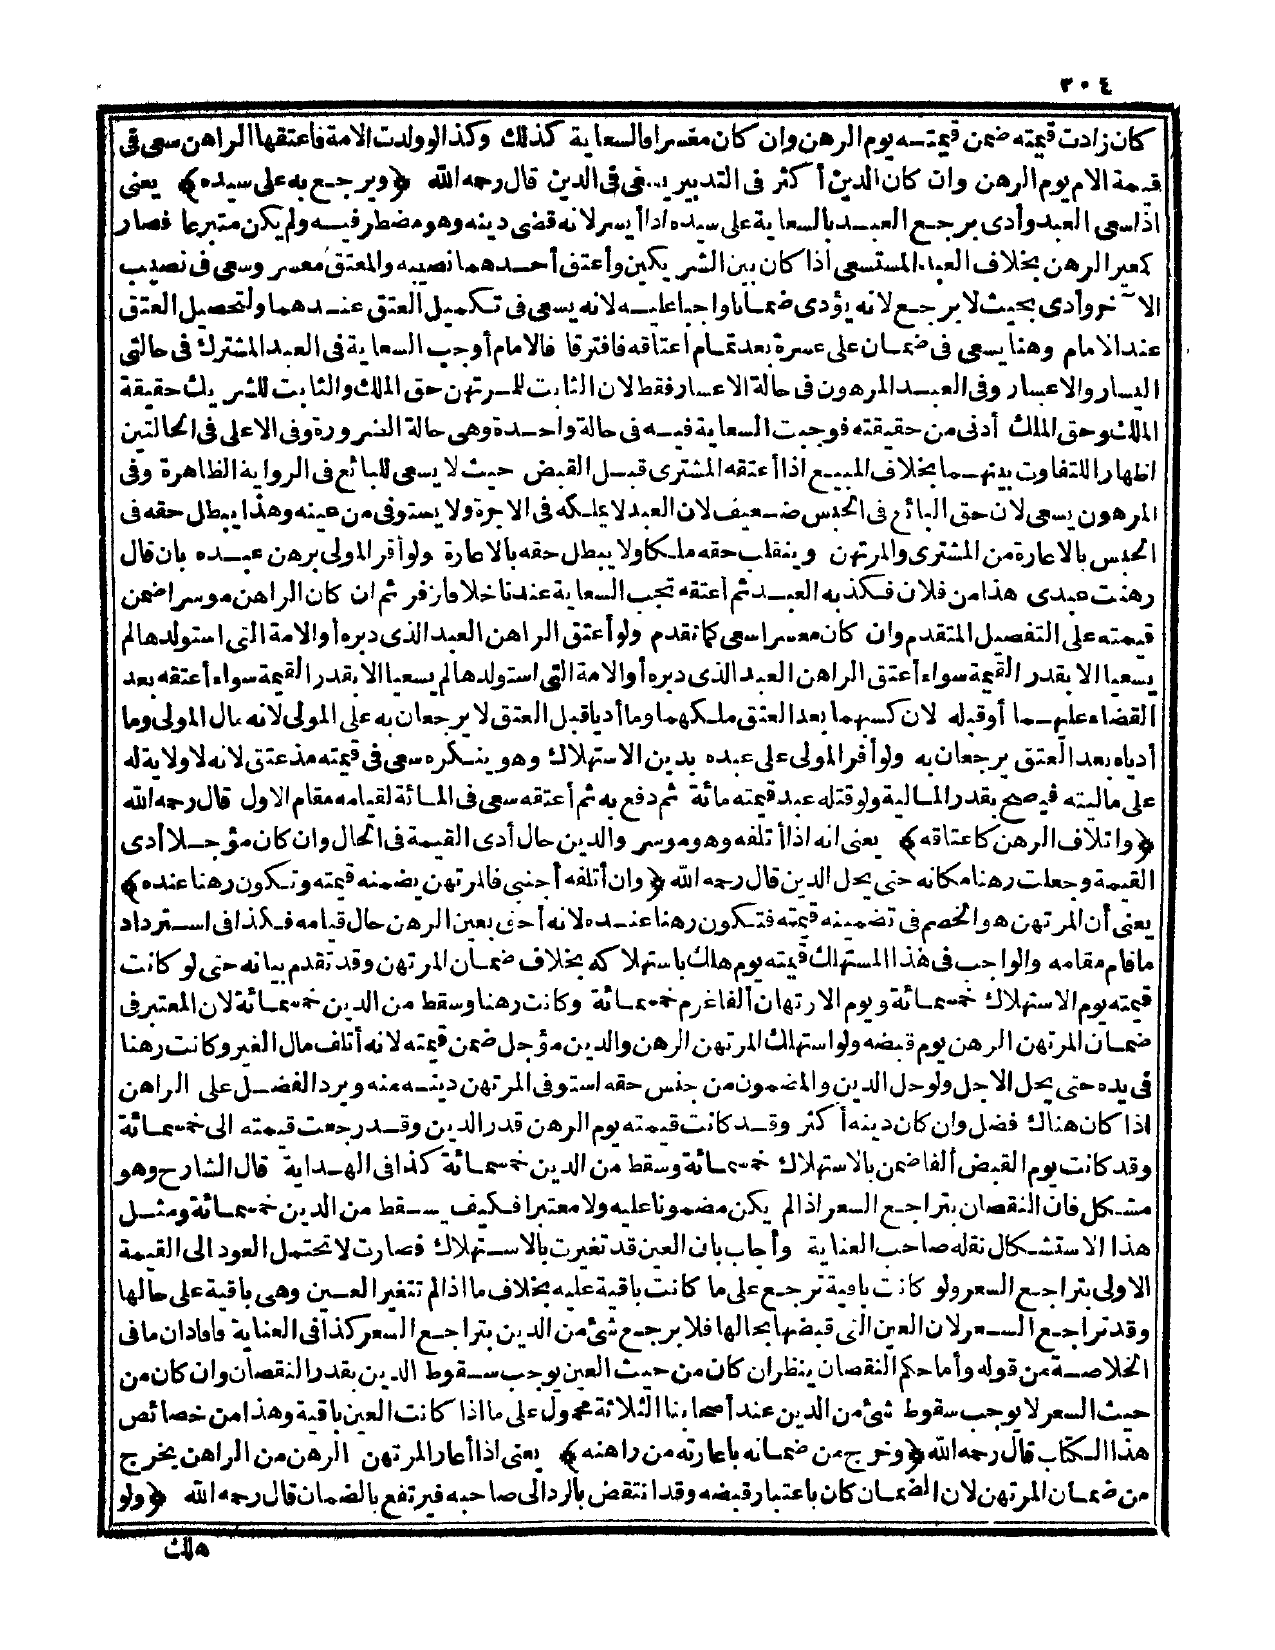 ٣٠٤
كان زادت قيمته ضمن قيمته يوم الرهن وان كان معسرا فالسعاية كذلك وكذا لو ولدت الامة فاعتقها الراهن سعى فى
قيمة الام يوم الرهن وان كان الدين أكثر فى التدبير يسعى فى الدين قال رحمه الله ﴿ويرجع به على سيده﴾ يعنى
اذا سعى العبد وأدى يرجع العبد بالسعاية على سيده اذا أيسر لانه قضى دينه وهو مضطر فيه ولم يكن متبرعا فصار
كمعير الرهن بخلاف العبد المستسعى اذا كان بين الشريكين وأعتق أحدهما نصيبه والمعتق معسر وسعى فى نصيب
الآخر وأدى بحيث لا يرجع لانه يؤدى ضمانا واجبا عليه لانه يسعى فى تكميل العتق عندهما ولتحصيل العتق
عند الامام وهنا يسعى فى ضمان على عسرة بعد تمام اعتاقه فافترقا فالامام أوجب السعاية فى العبد المشترك فى حالتى
اليسار والاعسار وفى العبد المرهون فى حالة الاعسار فقط لان الثابت للمرتهن حق الملك والثابت للشريك حقيقة
الملك وحق الملك أدنى من حقيقته فوجبت السعاية فيه فى حالة واحدة وهى حالة الضرورة وفى الاعلى فى الحالتين
اظهارا للتفاوت بينهما بخلاف المبيع اذا أعتقه المشترى قبل القبض حيث لا يسعى للبائع فى الرواية الظاهرة وفى
المرهون يسعى لان حق البائع فى الحبس ضعيف لان العبد لا يملكه فى الاجرة ولا يستوفى من عينه وهذا يبطل حقه فى
الحبس بالاعارة من المشترى والمرتهن وينقلب حقه ملكا ولا يبطل حقه بالاعارة ولو أقر المولى برهن عبده بان قال
رهنت عبدى هذا من فلان فكذبه العبد ثم أعتقه تجب السعاية عندنا خلافا لزفر ثم ان كان الراهن موسرا ضمن
قيمته على التفصيل المتقدم وان كان معسرا سعى كما تقدم ولو أعتق الراهن العبد الذى دبره أو الامة التى استولدها لم
يسعيا الا بقدر القيمة سواء أعتق الراهن العبد الذى دبره أو الامة التى استولدها لم يسعيا الا بقدر القيمة سواء أعتقه بعد
القضاء عليهما أو قبله لان كسبهما بعد العتق ملكهما وما أديا قبل العتق لا يرجعان به على المولى لانه مال المولى وما
أدياه بعد العتق يرجعان به ولو أقر المولى على عبده بدين الاستهلاك وهو ينكره سعى فى قيمته مذ عتق لانه لا ولاية له
على ماليته فيصح بقدر المالية ولو قتله عبد قيمته مائة ثم دفع به ثم أعتقه سعى فى المائة لقيامه مقام الاول قال رحمه الله
﴿واتلاف الرهن كاعتاقه﴾ يعنى انه اذا أتلفه وهو موسر والدين حال أدى القيمة فى الحال وان كان مؤجلا أدى
القيمة وجعلت رهنا مكانه حتى يحل الدين قال رحمه الله ﴿وان أتلفه أجنبى فالمرتهن يضمنه قيمته وتكون رهنا عنده﴾
يعنى أن المرتهن هو الخصم فى تضمينه قيمته فتكون رهنا عنده لانه أحق بعين الرهن حال قيامه فكذا فى استرداد
ماقام مقامه والواجب فى هذا المستهلك قيمته يوم هلك باستهلاكه بخلاف ضمان المرتهن وقد تقدم بيانه حتى لو كانت
قيمته يوم الاستهلاك خمسمائة ويوم الارتهان ألفا غرم خمسمائة وكانت رهنا وسقط من الدين خمسمائة لان المعتبر فى
ضمان المرتهن الرهن يوم قبضه ولو استهلك المرتهن الرهن والدين مؤجل ضمن قيمته لانه أتلف مال الغير وكانت رهنا
فى يده حتى يحل الاجل ولو حل الدين والمضمون من جنس حقه استوفى المرتهن دينه منه ويرد الفضل على الراهن
اذا كان هناك فضل وان كان دينه أكثر وقد كانت قيمته يوم الرهن قدر الدين وقد رجعت قيمته الى خمسمائة
وقد كانت يوم القبض ألفا ضمن بالاستهلاك خمسمائة وسقط من الدين خمسمائة كذا فى الهداية قال الشارح وهو
مشكل فان النقصان بتراجع السعر اذا لم يكن مضمونا عليه ولا معتبرا فكيف يسقط من الدين خمسمائة ومثل
هذا الاستشكال نقله صاحب العناية وأجاب بان العين قد تغيرت بالاستهلاك فصارت لا تحتمل العود الى القيمة
الاولى بتراجع السعر ولو كانت باقية ترجع على ما كانت باقية عليه بخلاف ما اذا لم تتغير العين وهى باقية على حالها
وقد تراجع السعر لان العين التى قبضها بحالها فلا يرجع شئ من الدين بتراجع السعر كذا فى العناية فافاد ان ما فى
الخلاصة من قوله وأما حكم النقصان ينظر ان كان من حيث العين يوجب سقوط الدين بقدر النقصان وان كان من
حيث السعر لا يوجب سقوط شئ من الدين عند أصحابنا الثلاثة محمول على ما اذا كانت العين باقية وهذا من خصائص
هذا الكتاب قال رحمه الله ﴿وخرج من ضمانه باعارته من راهنه﴾ يعنى اذا أعار المرتهن الرهن من الراهن يخرج
من ضمان المرتهن لان الضمان كان باعتبار قبضه وقد انتقض بالرد الى صاحبه فيرتفع بالضمان قال رحمه الله ﴿ولو
هلك